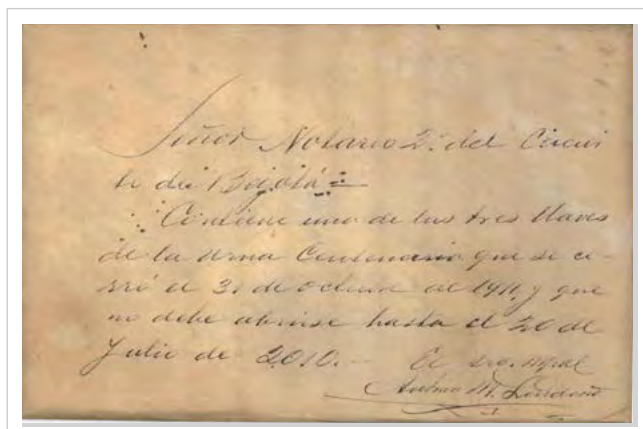 Señor Notario 2º del Circui
to de Bogotá =
Contiene una de las tres llaves
de la Urna Centenario que se ce-
rró el 31 de octubre de 1911, y que
no debe abrirse hasta el 20 de
Julio de 2,010.- El srio. mpal